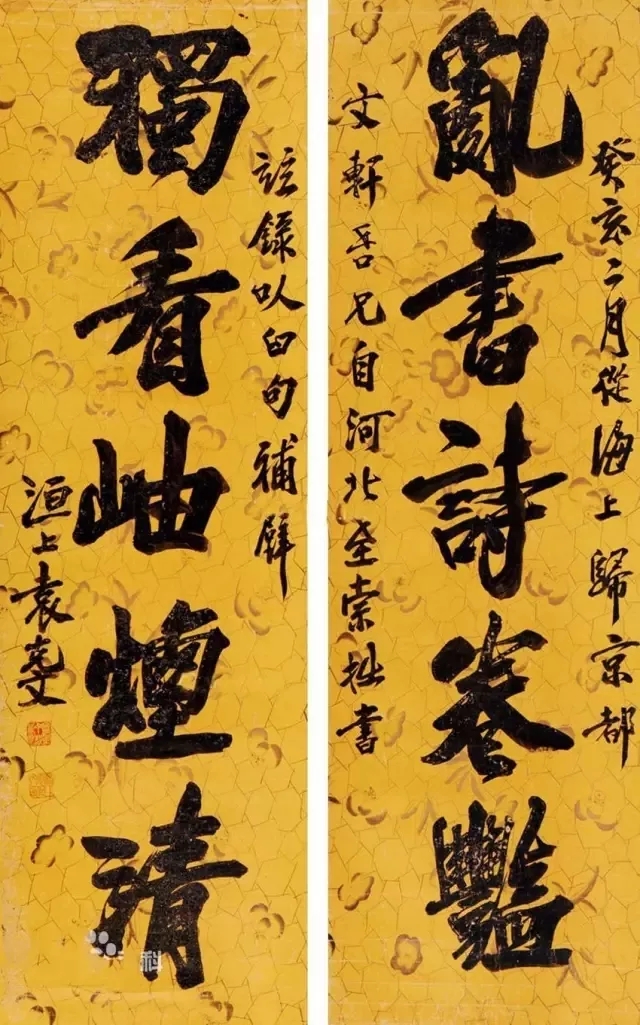 癸亥二月從海上歸京都
亂書詩卷豔
文軒吾兄自河北至索拙書
錄㕥臼句補壁
獨看岫煙清
洹上袁克文
科